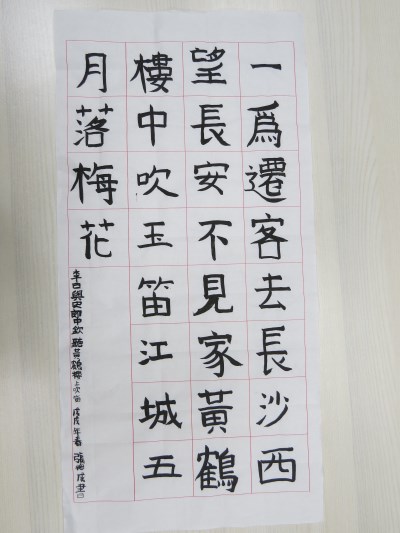 一爲遷客去長沙西
望長安不見家黃鶴
樓中吹玉笛江城五
月落梅花
與史郎中欽聽黃鶴樓上吹笛 戊戌年春